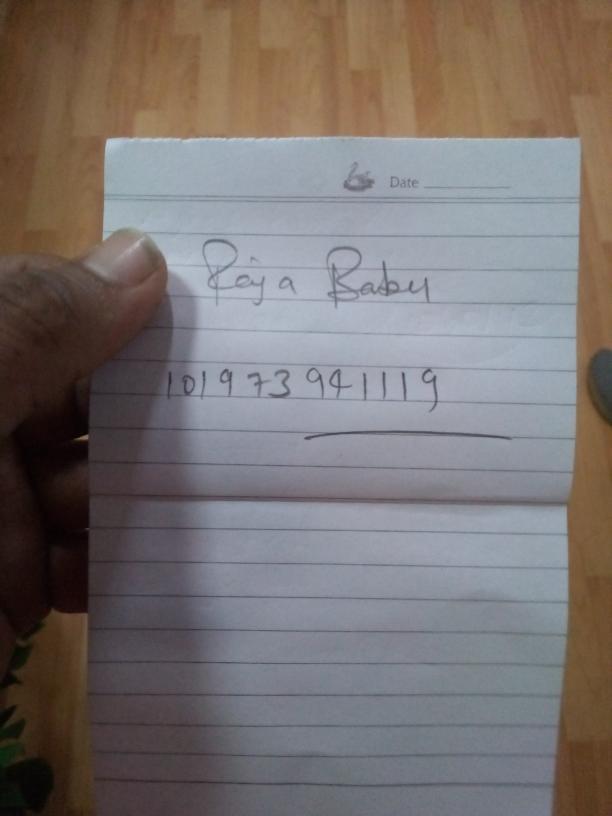 Date
Raja Babu
101973941119